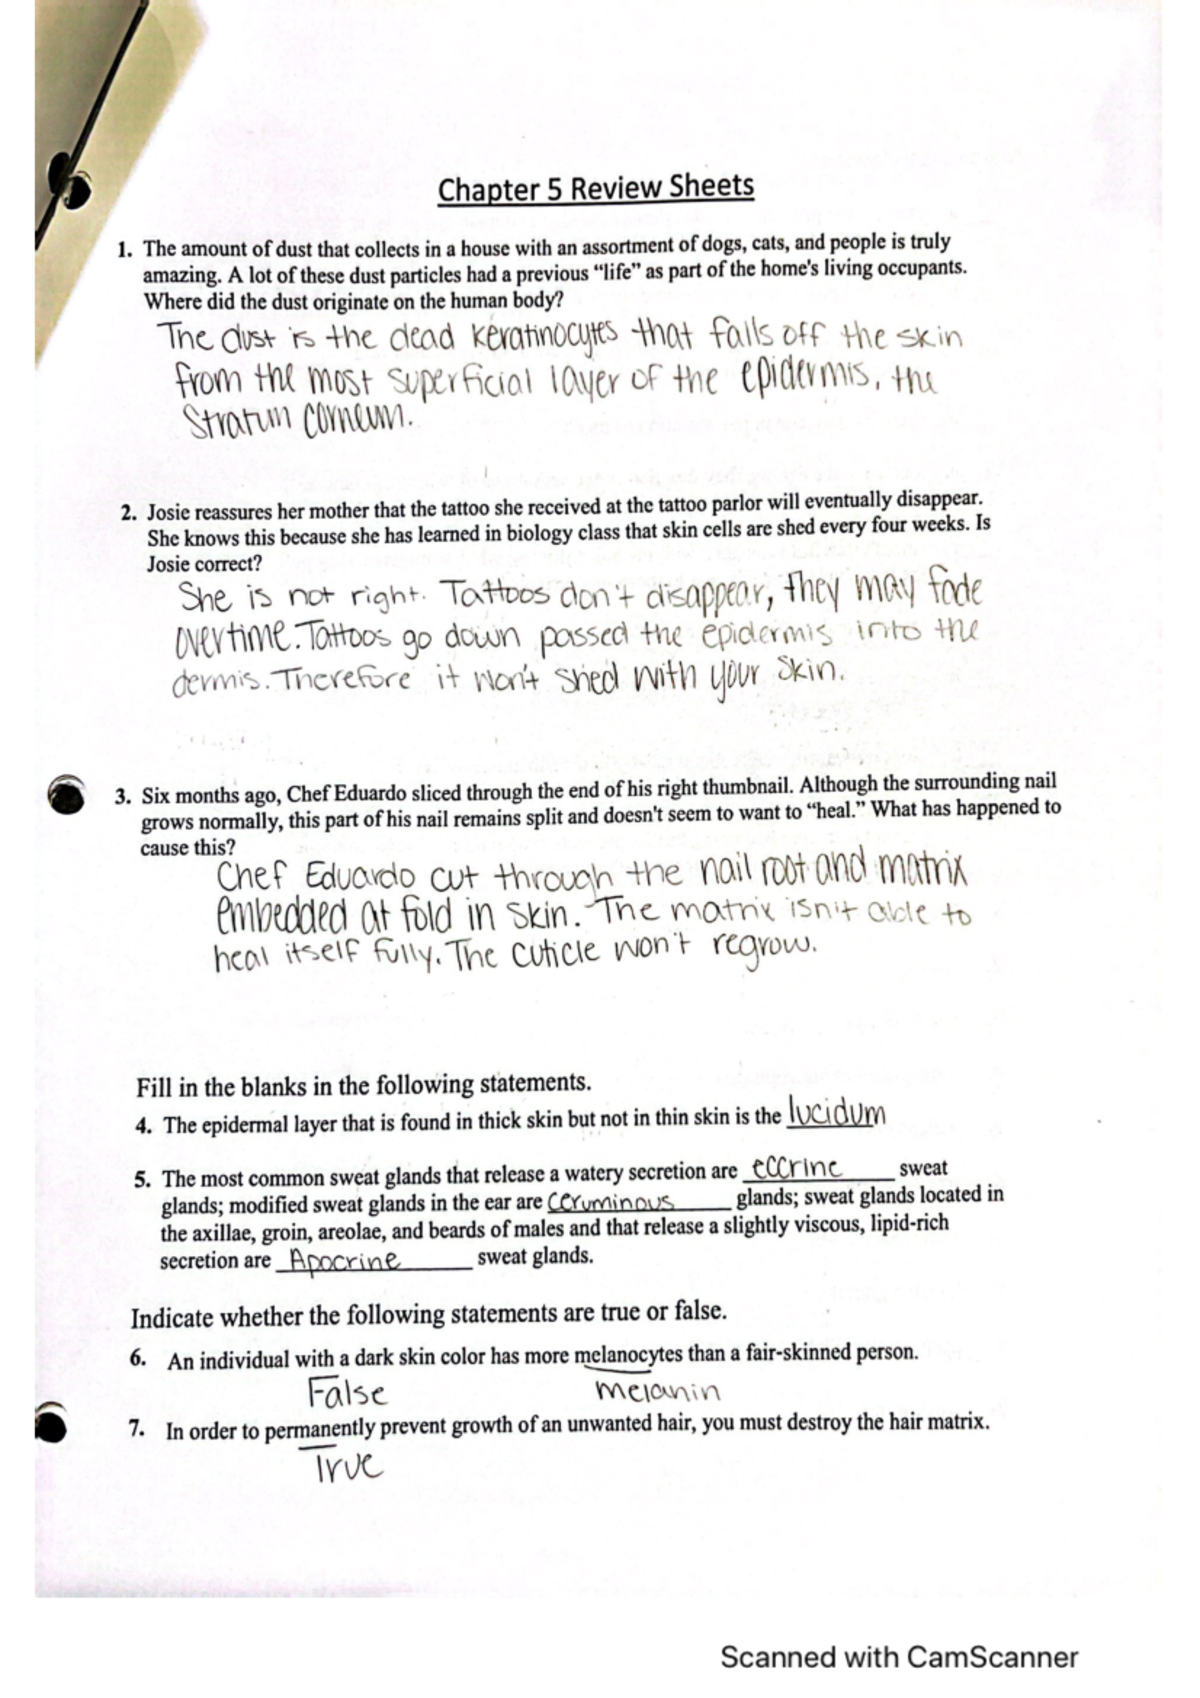 Chapter 5 Review Sheets
1. The amount of dust that collects in a house with an assortment of dogs, cats, and people is truly
amazing. A lot of these dust particles had a previous “life” as part of the home's living occupants.
Where did the dust originate on the human body?
The dust is the dead keratinocytes that falls off the skin
from the most superficial layer of the epidermis, the
Stratum corneum.
2. Josie reassures her mother that the tattoo she received at the tattoo parlor will eventually disappear.
She knows this because she has learned in biology class that skin cells are shed every four weeks. Is
Josie correct?
She is not right. Tattoos don't disappear, they may fade
overtime. Tattoos go down passed the epidermis into the
dermis. Therefore it won't shed with your skin.
3. Six months ago, Chef Eduardo sliced through the end of his right thumbnail. Although the surrounding nail
grows normally, this part of his nail remains split and doesn't seem to want to “heal.” What has happened to
cause this?
Chef Eduardo cut through the nail root and matrix
embedded at fold in skin. The matrix isn't able to
heal itself fully. The cuticle won't regrow.
Fill in the blanks in the following statements.
4. The epidermal layer that is found in thick skin but not in thin skin is the lucidum
5. The most common sweat glands that release a watery secretion are eccrine sweat
glands; modified sweat glands in the ear are ceruminous glands; sweat glands located in
the axillae, groin, areolae, and beards of males and that release a slightly viscous, lipid-rich
secretion are Apocrine sweat glands.
Indicate whether the following statements are true or false.
6. An individual with a dark skin color has more melanocytes than a fair-skinned person.
False melanin
7. In order to permanently prevent growth of an unwanted hair, you must destroy the hair matrix.
True
Scanned with CamScanner